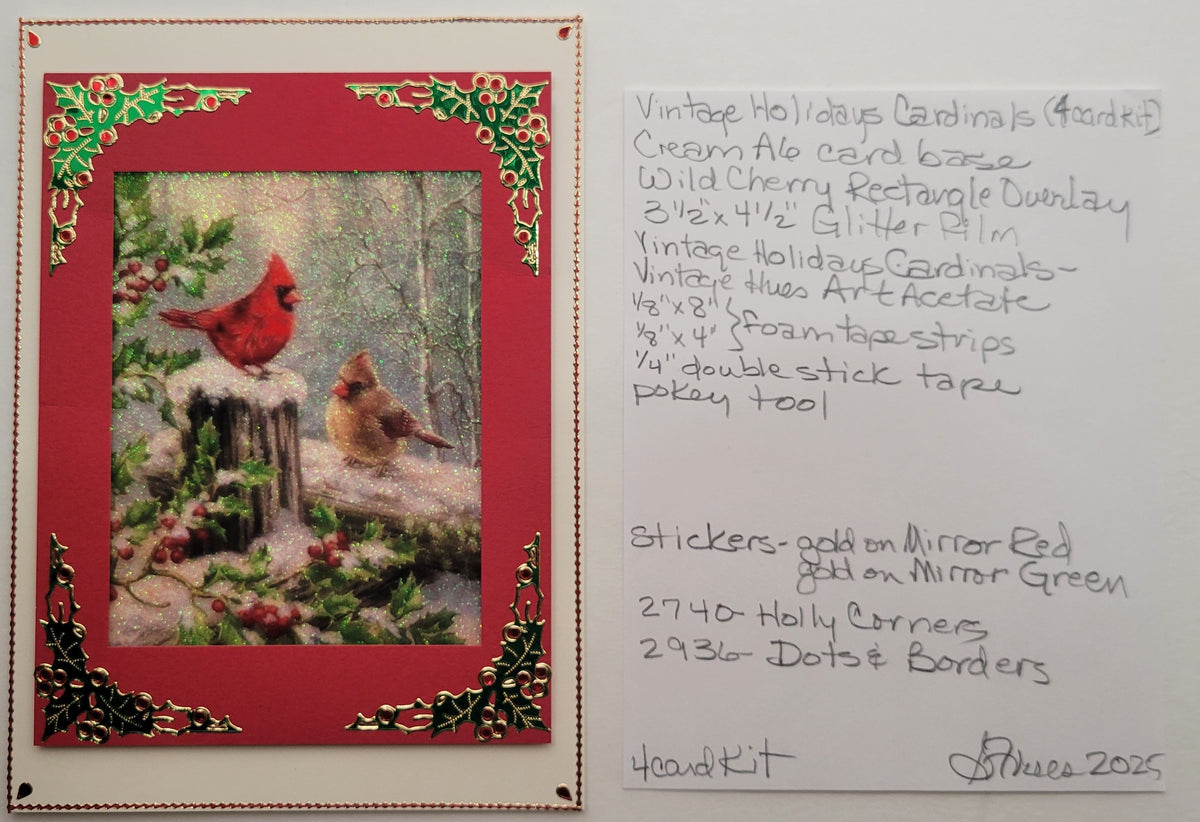 Vintage Holidays Cardinals (4 card kit)
Cream Ale card base
Wild Cherry Rectangle Overlay
3 1/2" x 4 1/2" Glitter Film
Vintage Holidays Cardinals-
Vintage Hues Art Acetate
1/8" x 8" } foam tape strips
1/8" x 4"
1/4" double stick tape
pokey tool
Stickers- gold on Mirror Red
gold on Mirror Green
2740- Holly Corners
2936- Dots & Borders
4 card Kit
2025